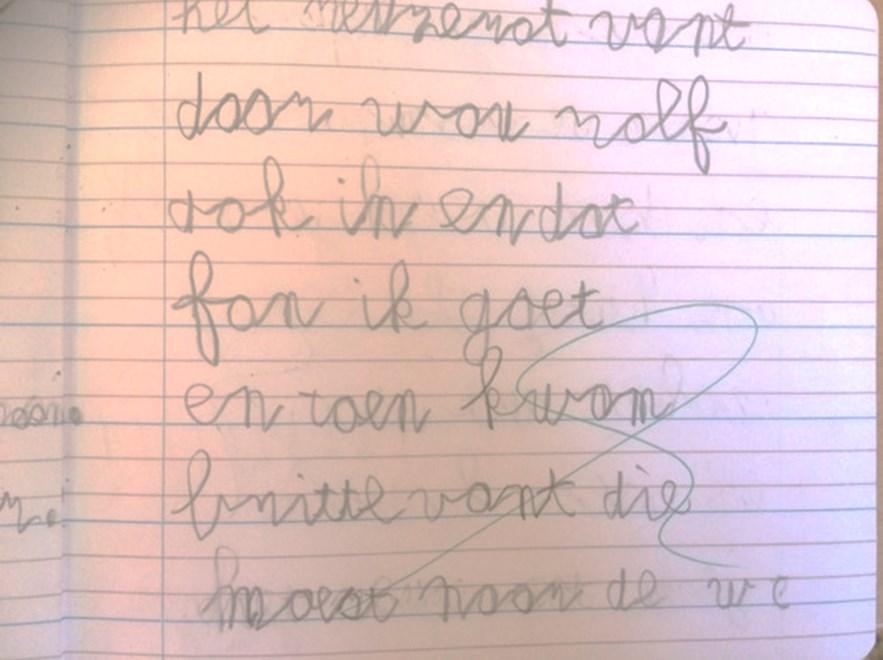 het want
daar was rolf
ook in en dat
fon ik goet
en toen kwam
britte want die
moest naar de wc